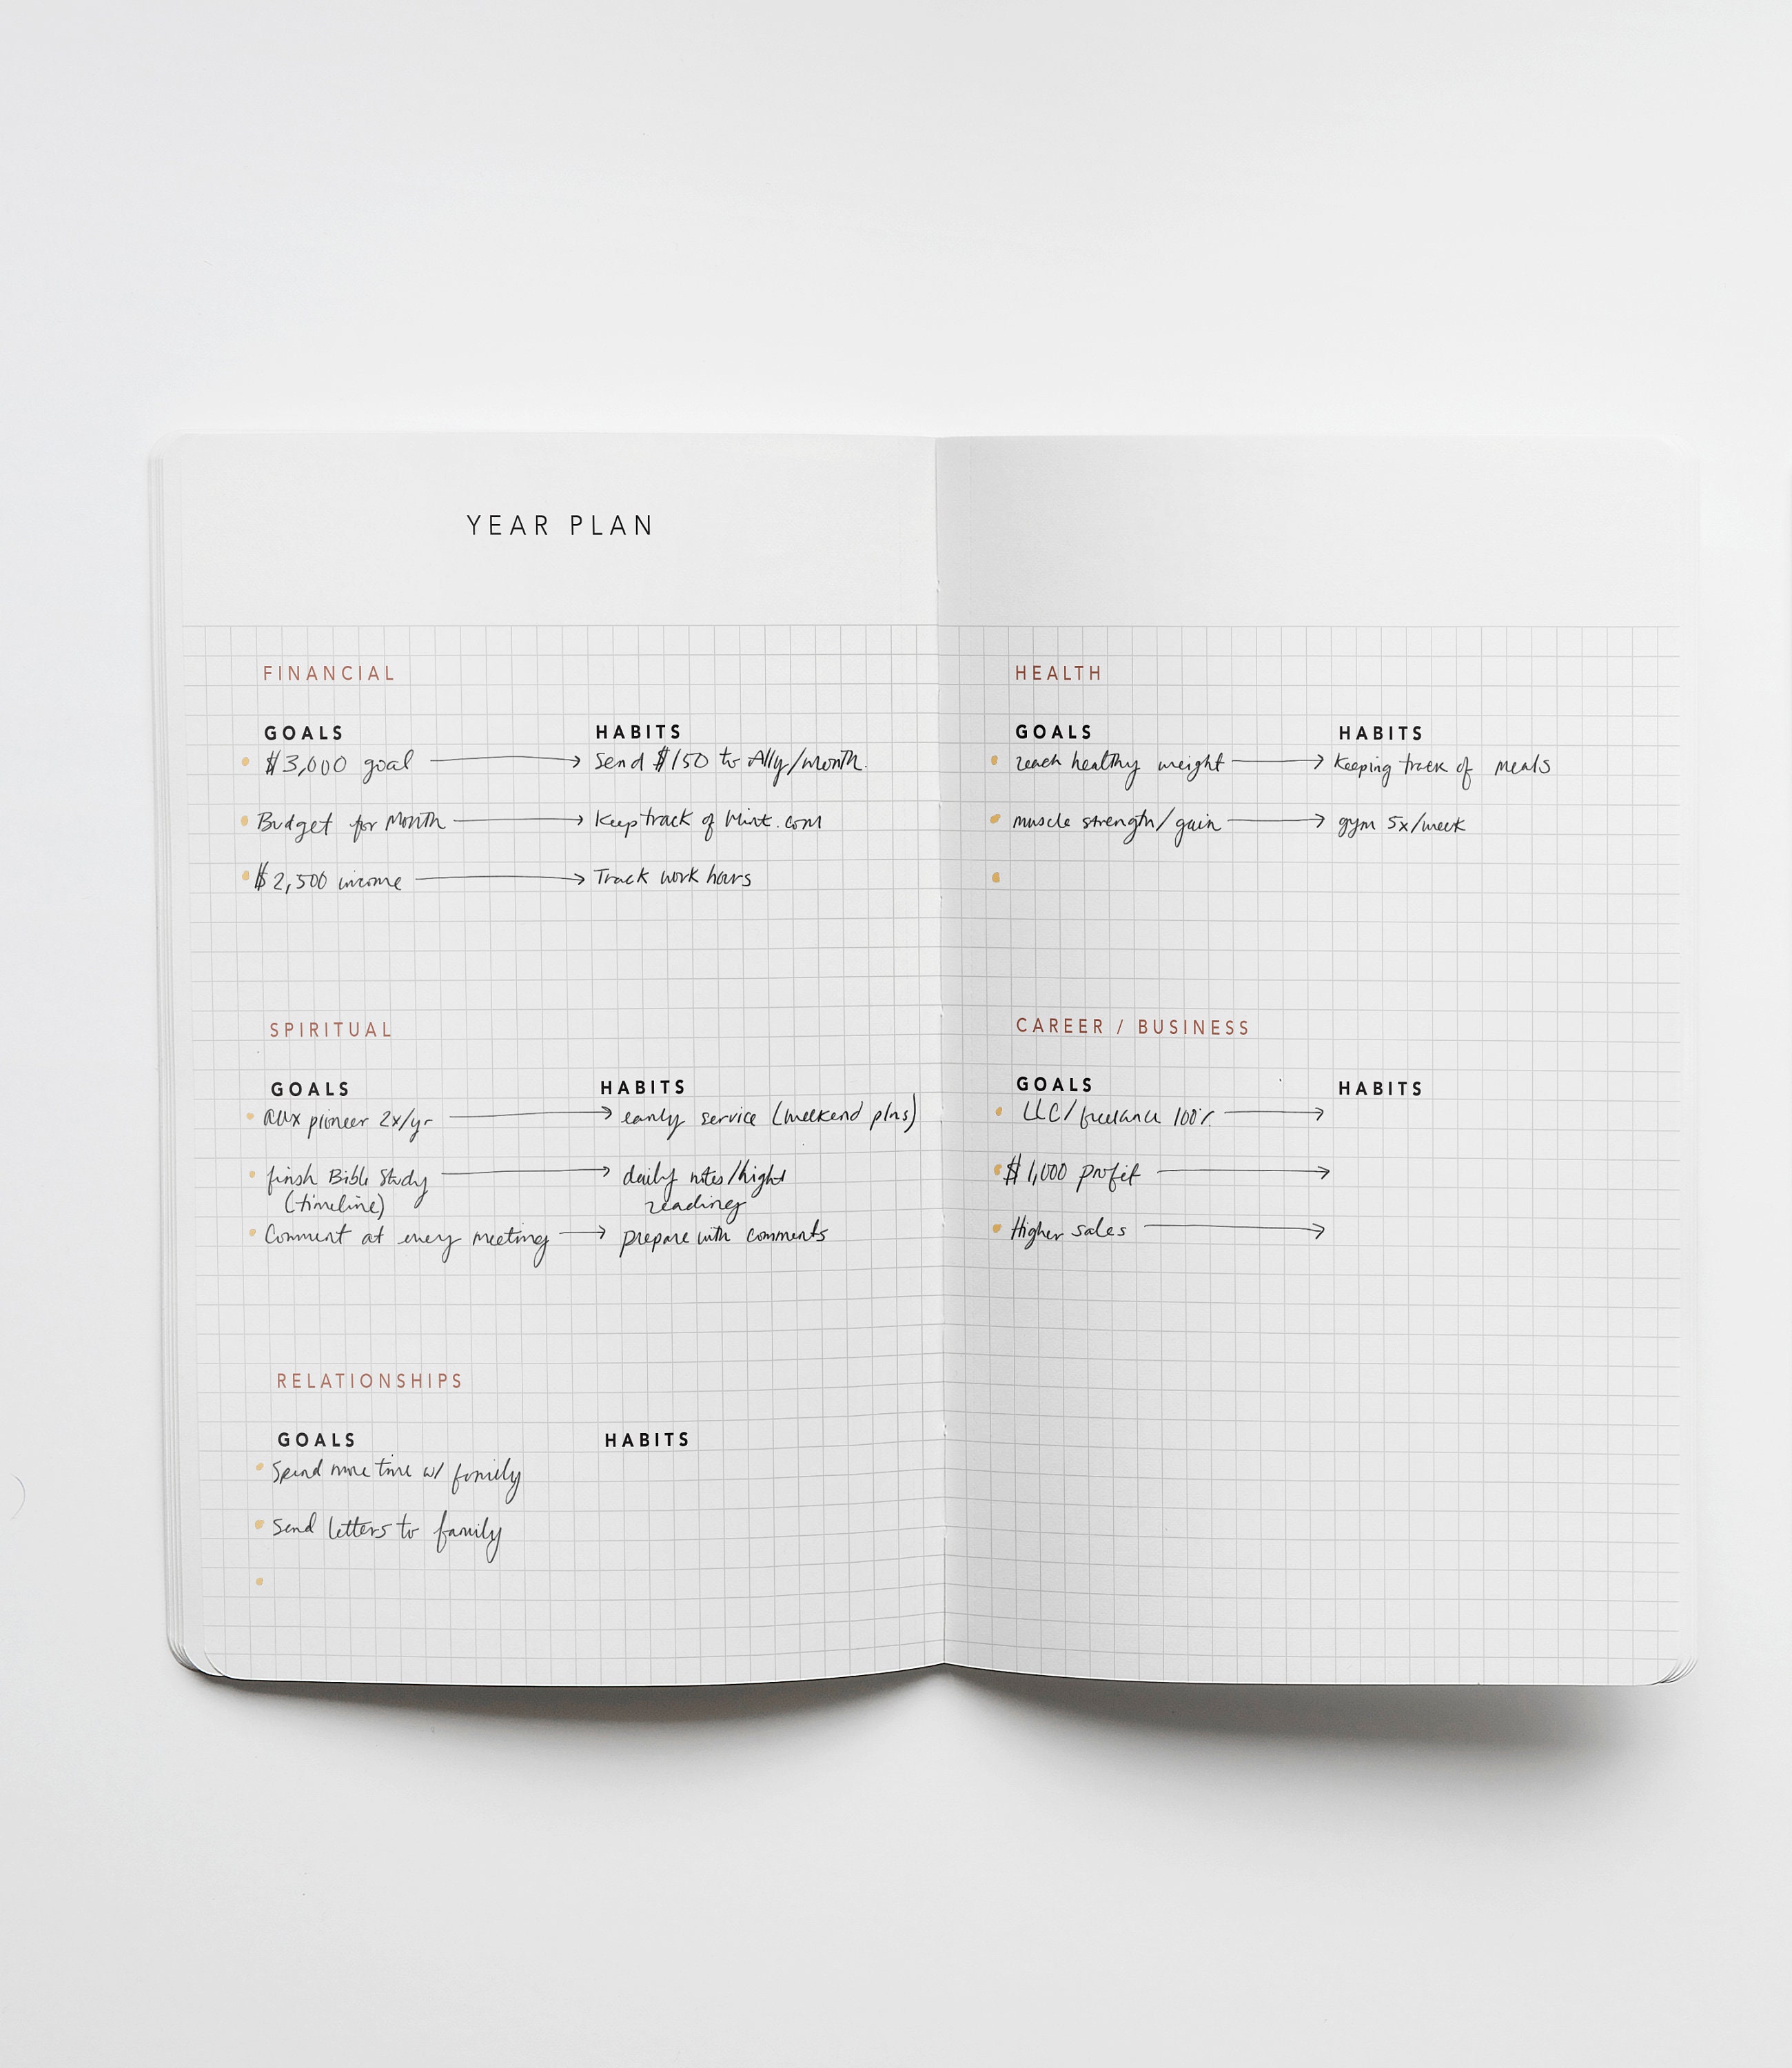 YEAR PLAN
FINANCIAL
GOALS HABITS
$3,000 goal → Send $150 to Ally/month.
Budget for Month → Keep track of Mint.com
$2,500 income → Track work hours
SPIRITUAL
GOALS HABITS
aux pioneer 2x/yr → early service (weekend plns)
finish Bible Study → daily notes/night
(timeline) reading
Comment at every meeting → prepare with comments
RELATIONSHIPS
GOALS HABITS
Spend more time w/ family
Send letters to family
HEALTH
GOALS HABITS
reach healthy weight → Keeping track of meals
muscle strength/gain → gym 5x/week
CAREER / BUSINESS
GOALS HABITS
LLC/freelance 100% →
$1,000 profit →
Higher sales →